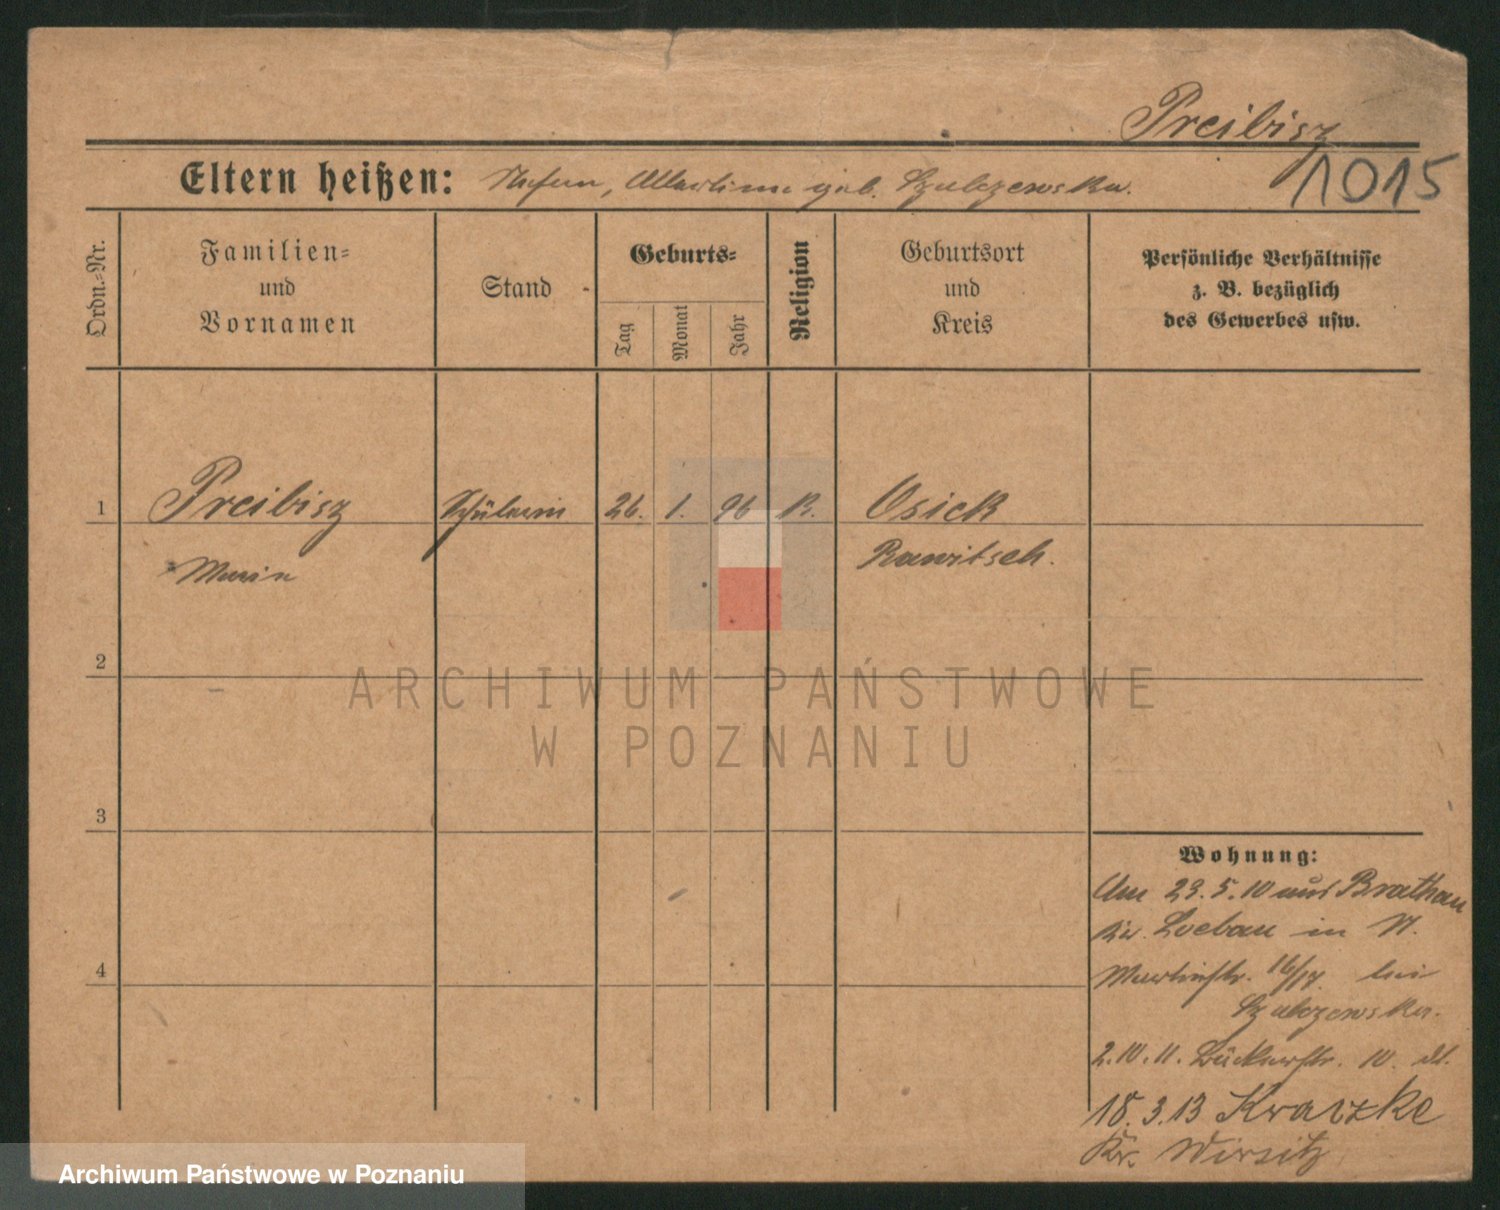 Preibisz
1015
Eltern heißen: Stefan, Albertine geb. Szulczewska.
Ordn.-Nr.
Familien- und Vornamen
Stand
Geburts-
Tag
Monat
Jahr
Religion
Geburtsort und Kreis
Persönliche Verhältnisse
z. B. bezüglich
des Gewerbes usw.
1 Preibisz Schülerin 26. 1. 96 K. Osiek
Marie Rawitsch.
2
3
4
Wohnung:
Am 23.5.10 aus Brathau
Kr. Loebau in W.
Martinstr. 16/17. bei
Szulczewska.
2.10.11. Bäckerstr. 10. dt.
18.3.13 Kraczke
Kr. Wirsitz
ARCHIWUM PAŃSTWOWE
W POZNANIU
Archiwum Państwowe w Poznaniu